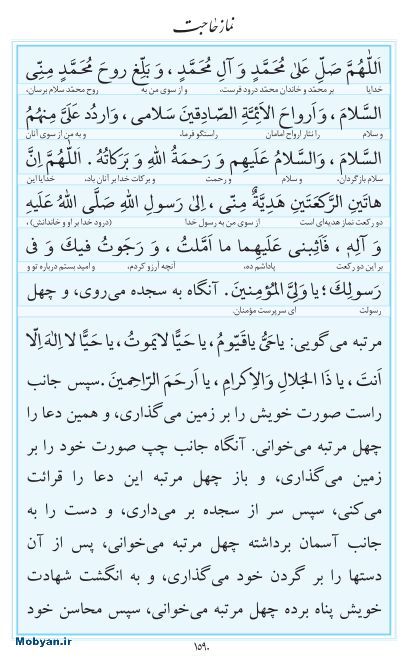 نماز حاجت
اَللّٰهُمَّ صَلِّ عَلىٰ مُحَمَّدٍ وَ آلِ مُحَمَّدٍ ، وَ بَلِّغ روحَ مُحَمَّدٍ مِنِّی
خدایا بر محمّد و خاندان محمّد درود فرست، و از سوی من به روح محمّد سلام برسان،
السَّلامَ ، وَ اَرواحَ الاَئِمَّةِ الصّادِقینَ سَلامی ، وَاردُد عَلَیَّ مِنهُمُ
و سلام را نثار ارواح امامان راستگو فرما، و به من از سوی آنان
السَّلامَ ، وَالسَّلامُ عَلَیهِم وَ رَحمَةُ اللهِ وَ بَرَکاتُهُ . اَللّٰهُمَّ اِنَّ
سلام بازگردان، و سلام و رحمت و برکات خدا بر آنان باد، خدایا این
هاتَینِ الرَّکعَتَینِ هَدِیَّةٌ مِنّی ، اِلیٰ رَسولِ اللهِ صَلَّی اللهُ عَلَیهِ
دو رکعت نماز هدیه‌ای است از سوی من به رسول خدا (درود خدا بر او و خاندانش) ،
وَ آلِهِ ، فَاَثِبنی عَلَیهِما ما اَمَّلتُ ، وَ رَجَوتُ فیكَ وَ فی
بر این دو رکعت پاداشم ده، آنچه آرزو کردم، و امید بستم درباره تو و
رَسولِكَ ؛ یا وَلِیَّ المُؤمِنینَ. آنگاه به سجده می‌روی، و چهل
رسولت ای سرپرست مؤمنان.
مرتبه می‌گویی: یاحَیُّ یاقَیّومُ ، یا حَیًّا لایَموتُ ، یا حَیًّا لا اِلٰهَ اِلّا
اَنتَ ، یا ذَا الجَلالِ وَالاِکرامِ ، یا اَرحَمَ الرّاحِمینَ .سپس جانب
راست صورت خویش را بر زمین می‌گذاری، و همین دعا را
چهل مرتبه می‌خوانی. آنگاه جانب چپ صورت خود را بر
زمین می‌گذاری، و باز چهل مرتبه این دعا را قرائت
می‌کنی، سپس سر از سجده بر می‌داری، و دست را به
جانب آسمان برداشته چهل مرتبه می‌خوانی، پس از آن
دستها را بر گردن خود می‌گذاری، و به انگشت شهادت
خویش پناه برده چهل مرتبه می‌خوانی، سپس محاسن خود
۱۵۹۰
Mobyan.ir